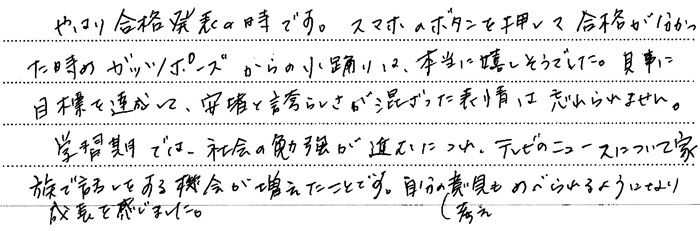 やはり合格発表の時です。スマホのボタンを押して合格が分かっ
た時のガッツポーズからの小踊りは、本当に嬉しそうでした。見事に
目標を達成して、安堵と誇らしさが混ざった表情は忘れられません。
学習期では、社会の勉強が進むにつれ、テレビのニュースについて家
族で話しをする機会が増えたことです。自分の意見ものべられるようになり
(考え
成長を感じました。